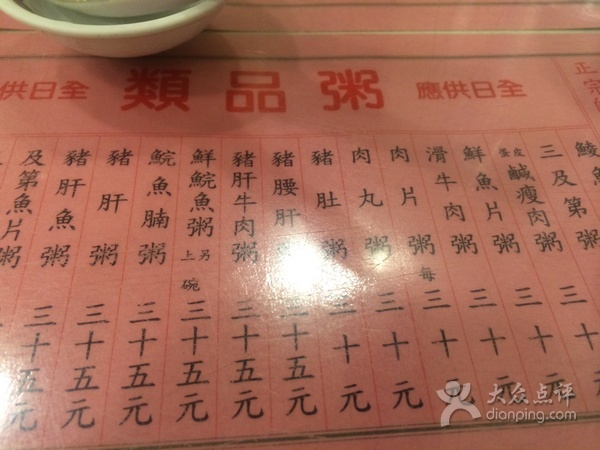 正宗
全日供應
粥品類
全日供
鯪魚
三及第粥 三十元
皮蛋鹹瘦肉粥 三十元
鮮魚片粥 三十元
滑牛肉粥 每 三十元
肉片粥 三十元
肉丸粥 三十元
豬肚粥 三十元
豬腰肝粥 三十五元
豬肝牛肉粥 三十五元
鮮鯇魚粥 另上碗 三十五元
鯇魚腩粥 三十五元
豬肝粥 三十五元
豬肝魚粥 三十五元
及第魚片粥 三十五元
大众点评
dianping.com